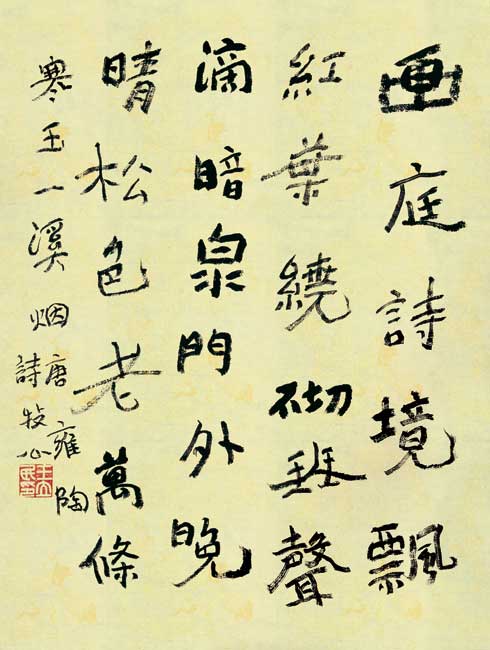 画庭詩境飄
紅葉繞砌聲
滴暗泉門外晚
晴松色老萬條
寒玉一溪烟
唐雍陶
詩牧心